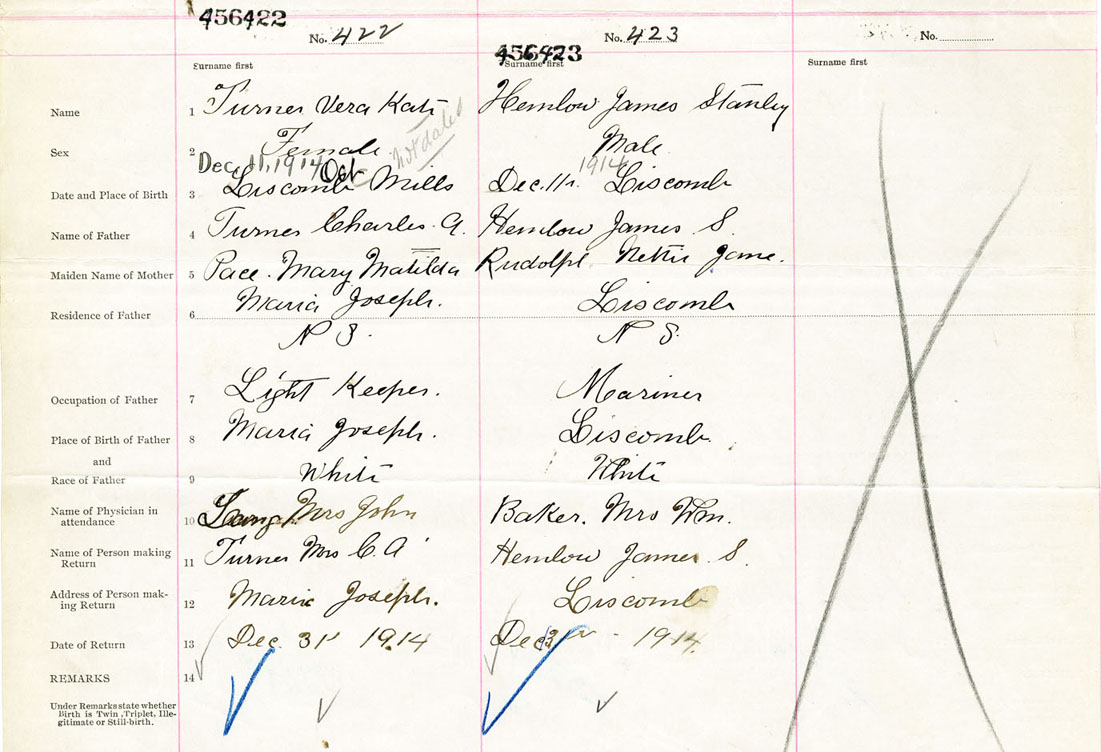 456422
No. 422
456423
No. 423
No.
Surname first
Surname first
Surname first
Name 1 Turner Vera Kate Hemlow James Stanley
Sex 2 Female Male
not dated
Dec 11, 1914 Oct 1914
Date and Place of Birth 3 Liscomb Mills Dec. 11. Liscomb
Name of Father 4 Turner Charles. A. Hemlow James S.
Maiden Name of Mother 5 Pace. Mary Matilda Rudolph Nettie Jane.
Residence of Father 6 Maria Joseph. Liscomb
N S. N S.
Occupation of Father 7 Light Keeper. Mariner
Place of Birth of Father 8 Maria Joseph. Liscomb
and
Race of Father 9 White White
Name of Physician in attendance 10 Mrs John Baker. Mrs Wm.
Name of Person making Return 11 Turner Mrs C. A Hemlow James S.
Address of Person making Return 12 Maria Joseph. Liscomb
Date of Return 13 Dec. 31 1914 Dec 1914.
REMARKS 14
Under Remarks state whether
Birth is Twin, Triplet, Ille-
gitimate or Still-birth.